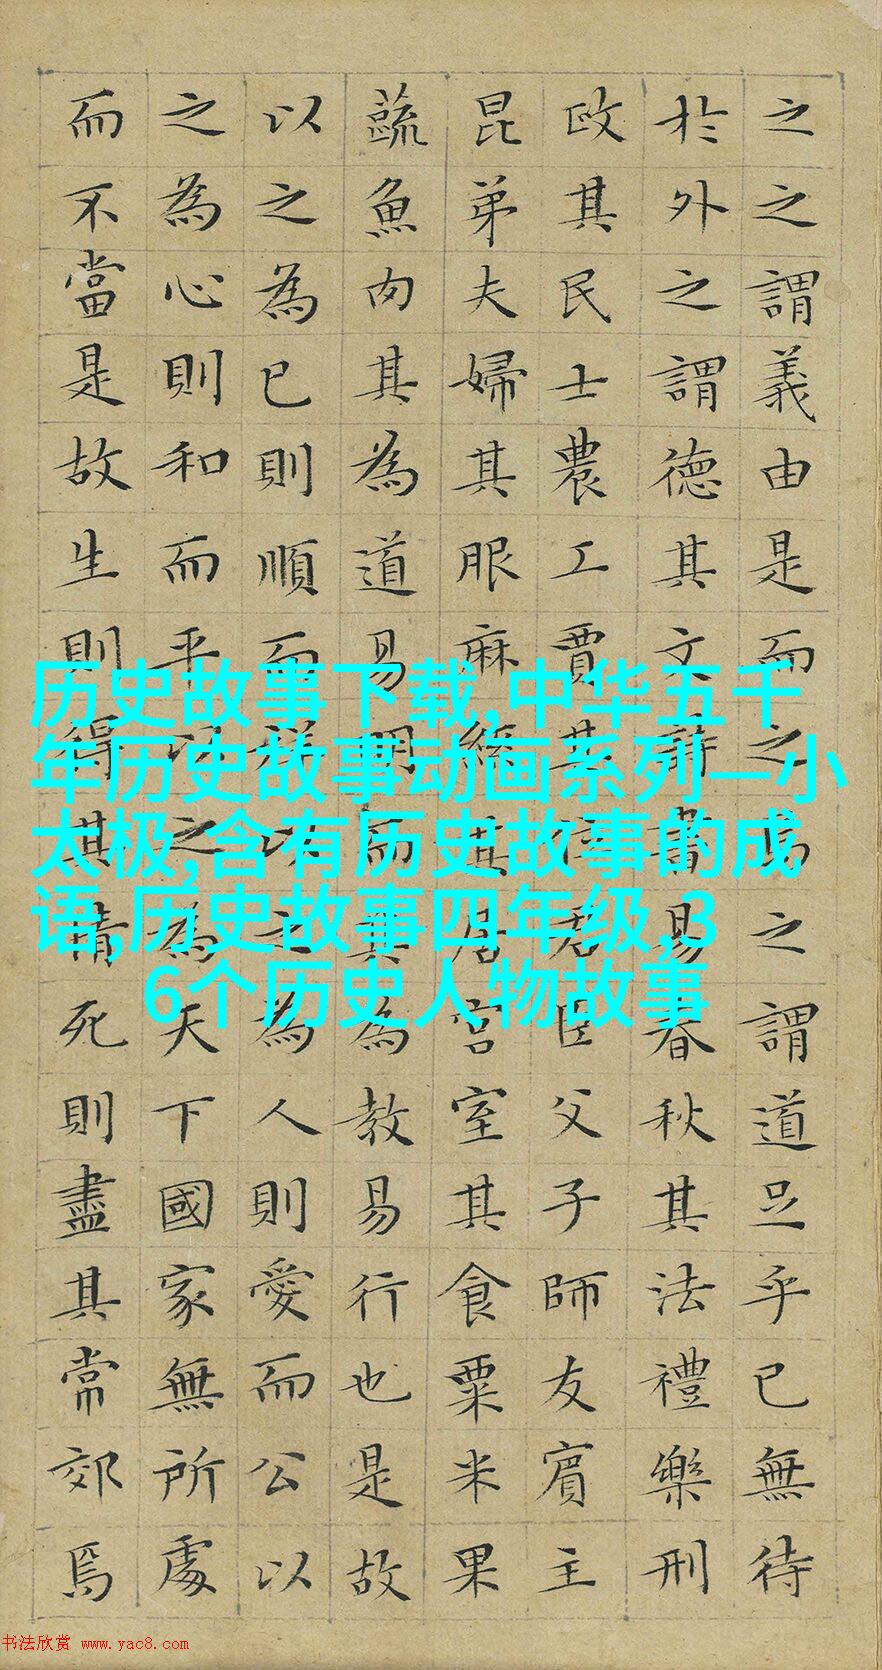 之之謂義由是而之焉之謂道足乎已無待
於外之謂德其文詩書易春秋其法禮樂刑
政其民士農工賈其位君臣父子師友賓主
昆弟夫婦其服麻絲其居宮室其食粟米果
蔬魚肉其為道易明而其為教易行也是故
以之為已則順而祥以之為人則愛而公以
之為心則和而平以之為天下國家無所處
而不當是故生則得其情死則盡其常郊焉
历史故事下载,中华五千
年历史故事动画系列—小
太极,含有历史故事的成
语,历史故事四年级,3
6个历史人物故事
书法欣赏 www.yac8.com